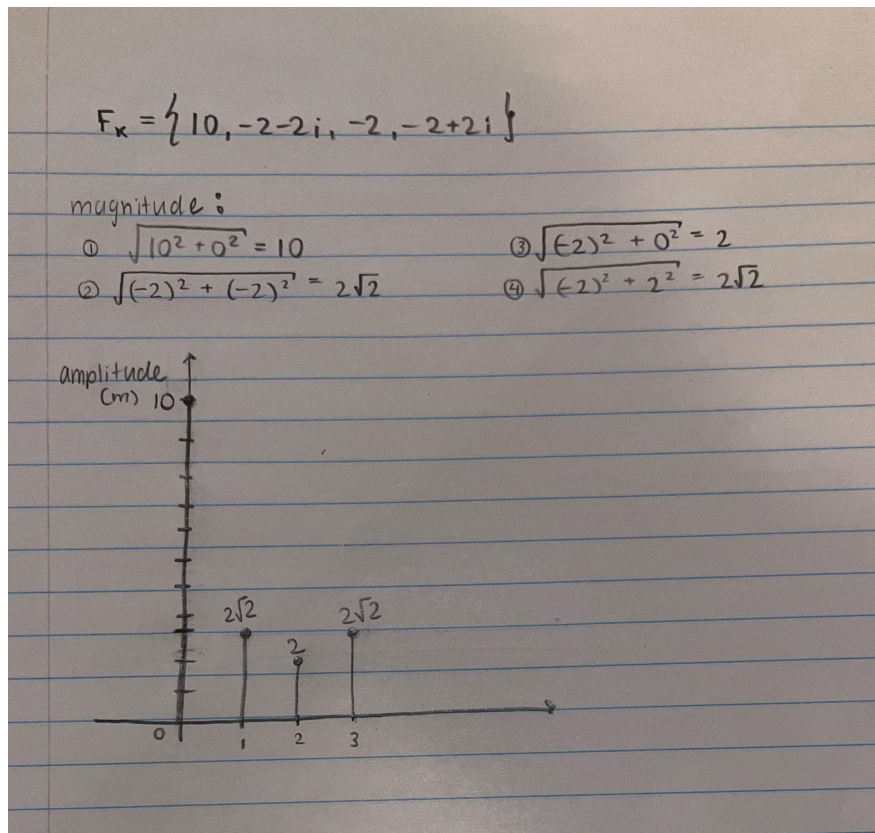 Fₖ = { 10, -2-2i, -2, -2+2i }
magnitude:
① √(10² + 0²) = 10
② √((-2)² + (-2)²) = 2√2
③ √((-2)² + 0²) = 2
④ √((-2)² + 2²) = 2√2
amplitude
(m) 10
2√2
2
2√2
0
1
2
3